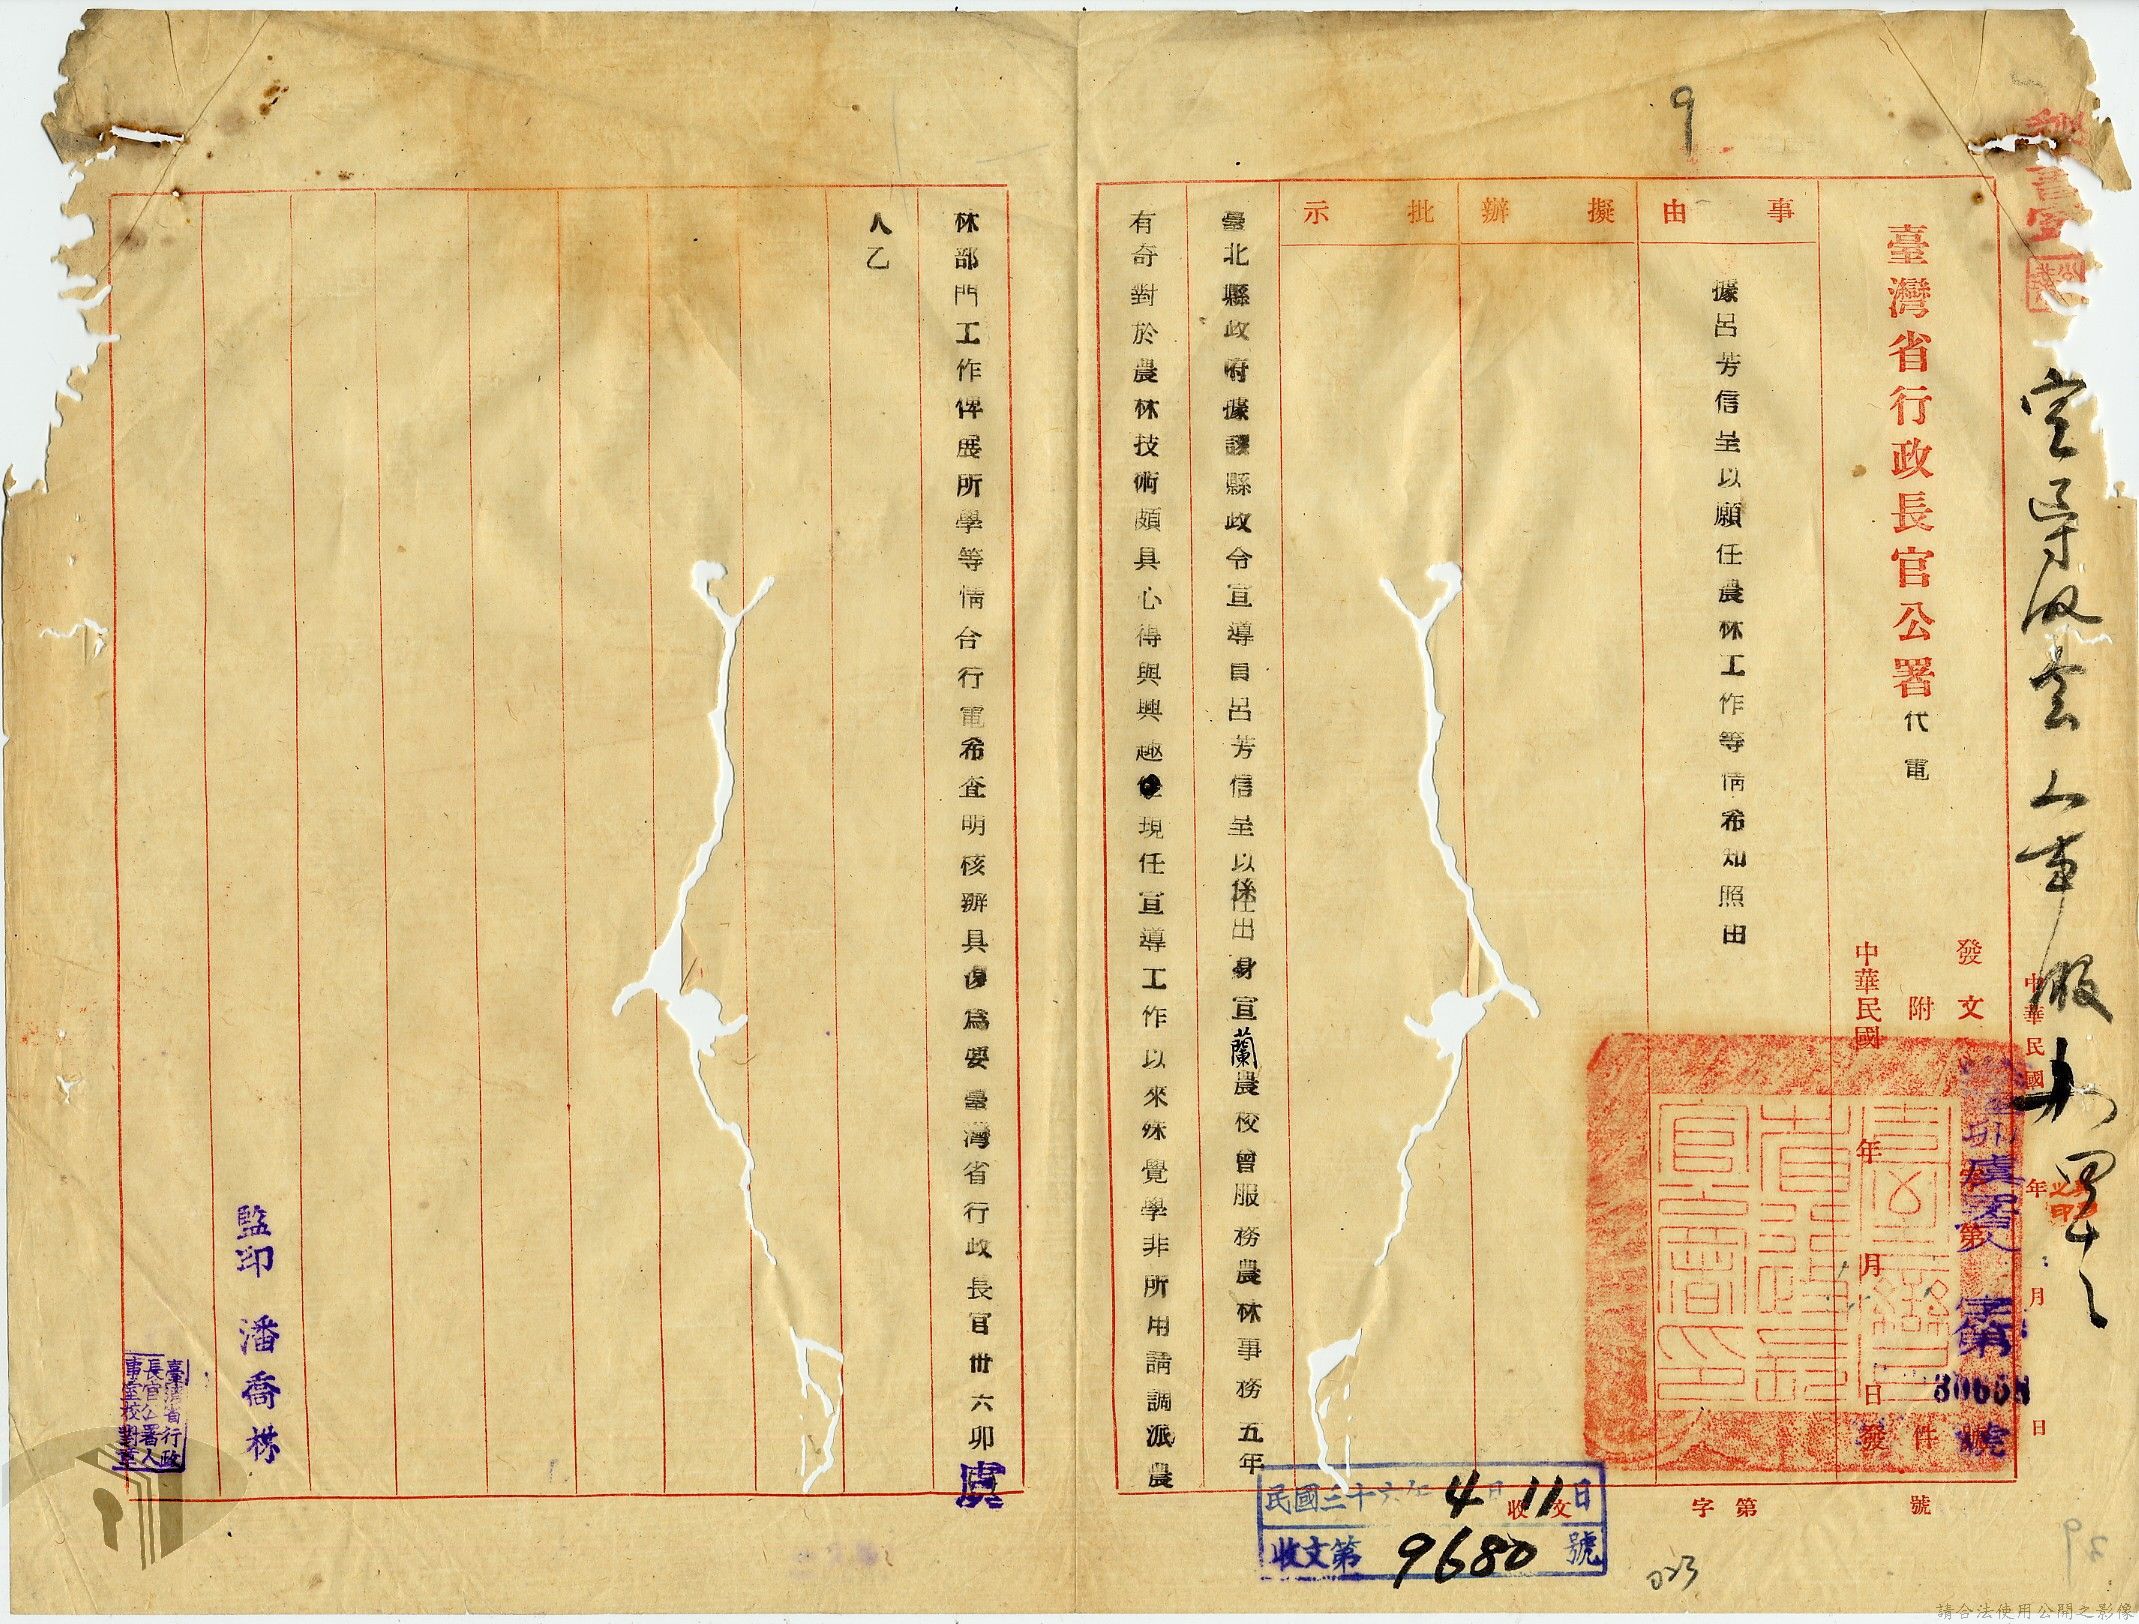 9
臺灣省行政長官公署 代電
中華民國 年 月 日
發文
附 件
中華民國 年 月 日 發
第
30658
號
事由
擬辦
批示
據呂芳信呈以願任農林工作等情布知照由
臺北縣政府據該縣政令宣導員呂芳信呈以係出身宜蘭農校曾服務農林事務五年
有奇對於農林技術頗具心得與興趣 現任宣導工作以來殊覺學非所用請調派農
林部門工作俾展所學等情合行電布查明核辦具復為要臺灣省行政長官卅六卯虞
人乙
監印 潘喬
臺灣省行政長官公署人事室校對章
收文 字第 號
民國三十六年4月11日
收文第9680號
023
請合法使用公開之影像